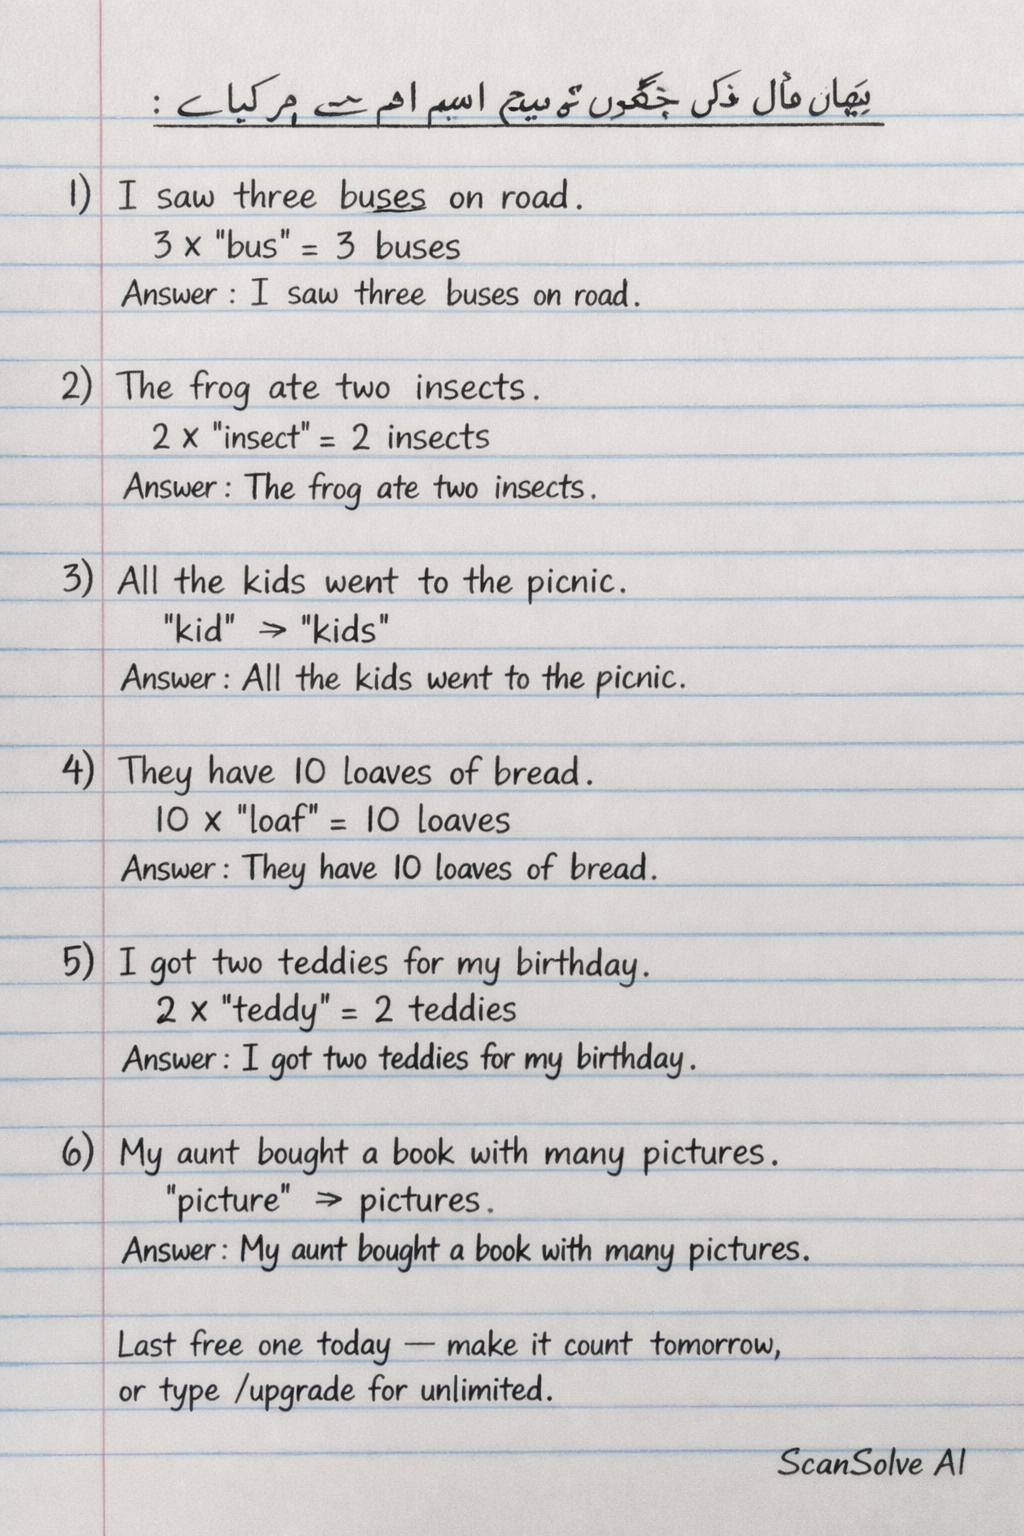 1) I saw three buses on road.
3 x "bus" = 3 buses
Answer : I saw three buses on road.
2) The frog ate two insects.
2 x "insect" = 2 insects
Answer : The frog ate two insects.
3) All the kids went to the picnic.
"kid" ⇒ "kids"
Answer : All the kids went to the picnic.
4) They have 10 loaves of bread.
10 x "loaf" = 10 loaves
Answer : They have 10 loaves of bread.
5) I got two teddies for my birthday.
2 x "teddy" = 2 teddies
Answer : I got two teddies for my birthday.
6) My aunt bought a book with many pictures.
"picture" ⇒ pictures.
Answer : My aunt bought a book with many pictures.
Last free one today — make it count tomorrow,
or type /upgrade for unlimited.
ScanSolve AI